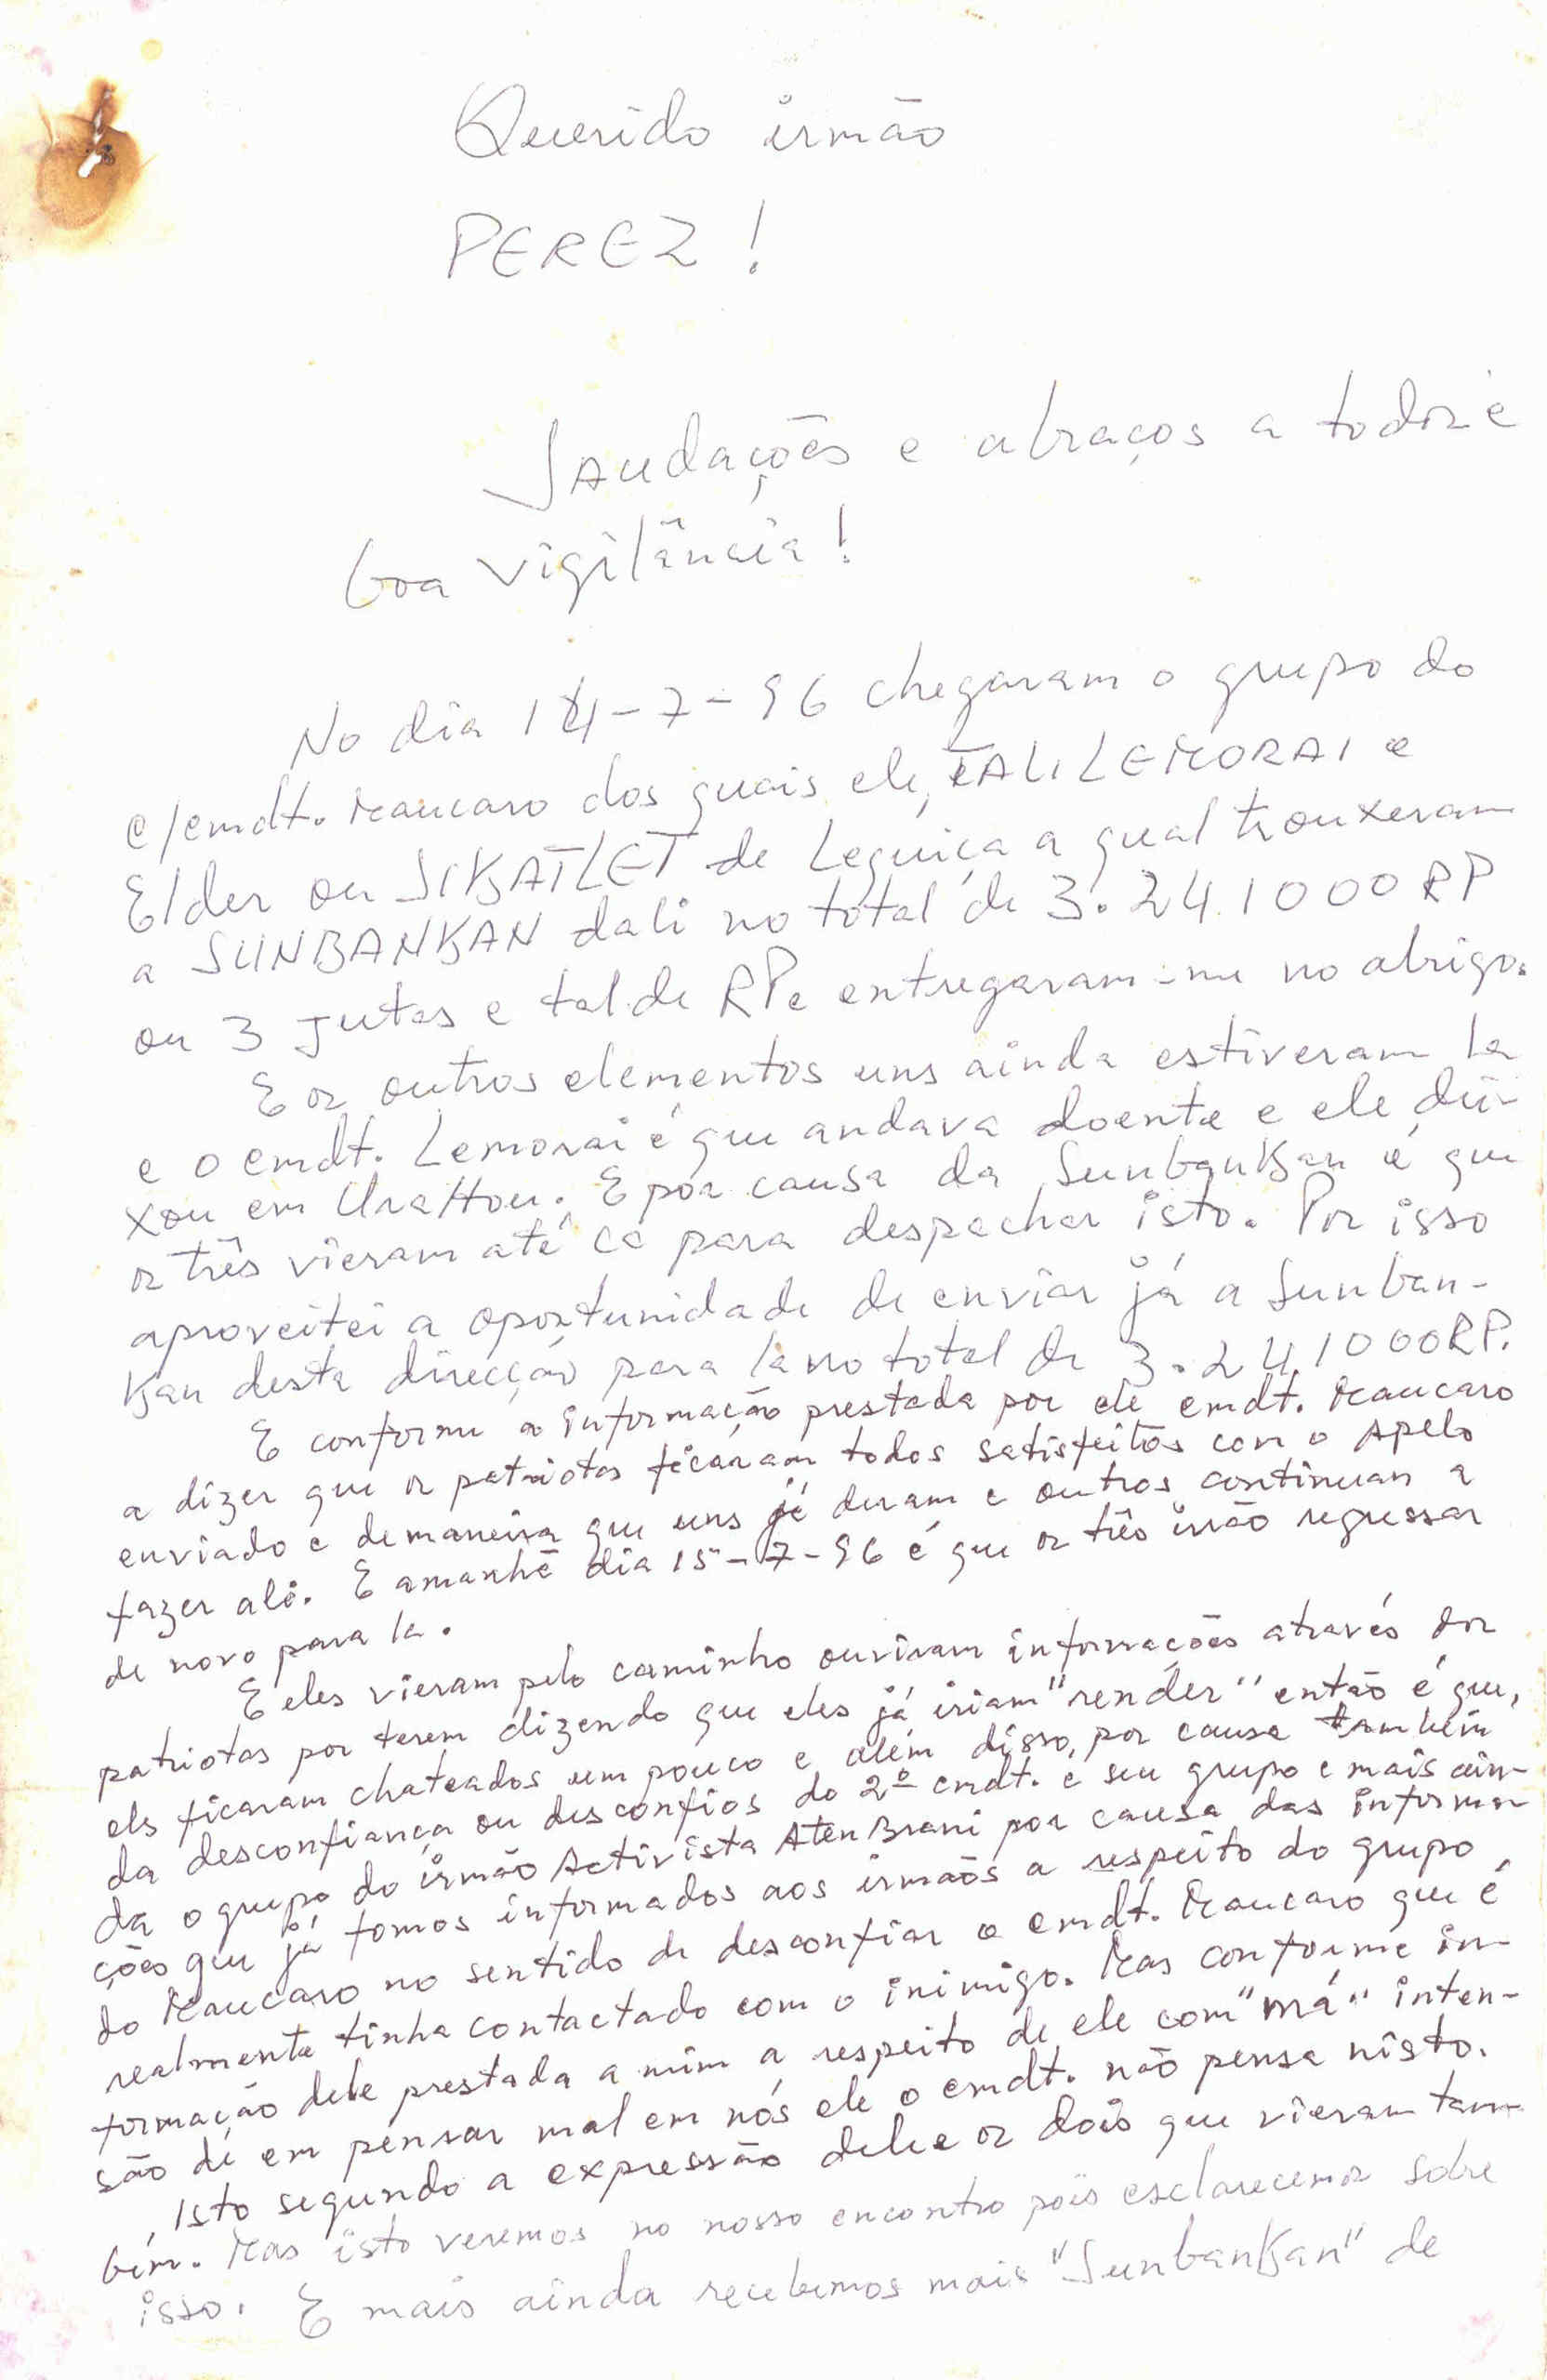 Querido irmão
PEREZ!
Saudações e abraços a todos e
boa vigilância!
No dia 14-7-96 chegaram o grupo do
c/cmdt. Maucaro dos quais ele, LEMORAI e
Elder ou SIKATLET de Leguiça a qual trouxeram
a SUNBANKAN dali no total de 3.241000 RP
ou 3 jutas e tal de RP e entregaram-me no abrigo.
E os outros elementos uns ainda estiveram la
e o cmdt. Lemorai é que andava doente e ele dei-
xou em UraHou. E por causa da Sunbankan é que
os três vieram até cá para despachar isto. Por isso
aproveitei a oportunidade de enviar já a Sunban-
kan desta direcção para la no total de 3.241000RP.
E conforme a informação prestada por ele cmdt. Maucaro
a dizer que os patriotas ficaram todos satisfeitos com o apelo
enviado e de maneira que uns já deram e outros continuan a
fazer ali. E amanhã dia 15-7-96 é que os três irão regressar
de novo para la.
E eles vieram pelo caminho ouviram informações através dos
patriotas por terem dizendo que eles já iriam "render" então é que,
els ficaram chateados um pouco e além disso, por causa também
da desconfiança ou desconfios do 2º cmdt. e seu grupo e mais ain-
da o grupo do irmão Activista Aten Brani por causa das informa-
ções que já fomos informados aos irmãos a respeito do grupo
do Maucaro no sentido de desconfiar o cmdt. Maucaro que é
realmente tinha contactado com o inimigo. Mas conforme in-
formação dele prestada a mim a respeito de ele com "má" inten-
são de em pensar mal em nós ele o cmdt. não pensa nisto.
Isto segundo a expressão dele e os dois que vieram tam-
bém. Mas isto veremos no nosso encontro pois esclarecemos sobre
isso. E mais ainda recebemos mais "Sunbankan" de